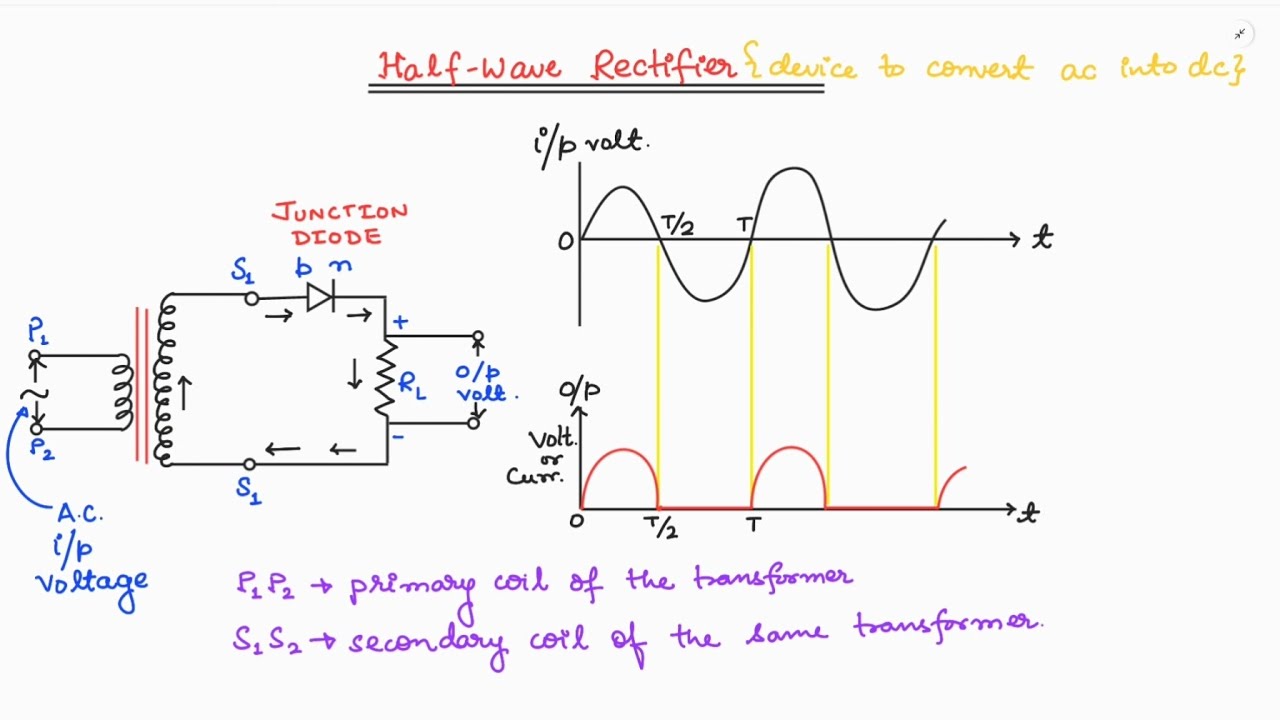 Half-Wave Rectifier {device to convert ac into dc}
i/p volt.
T/2
T
0
t
JUNCTION
DIODE
S1
p n
P1
+
RL
O/p
volt.
-
P2
S1
A.C.
i/p
voltage
O/p
Volt.
or
Curr.
0
T/2
T
t
P1P2 → primary coil of the transformer
S1S2 → secondary coil of the same transformer.